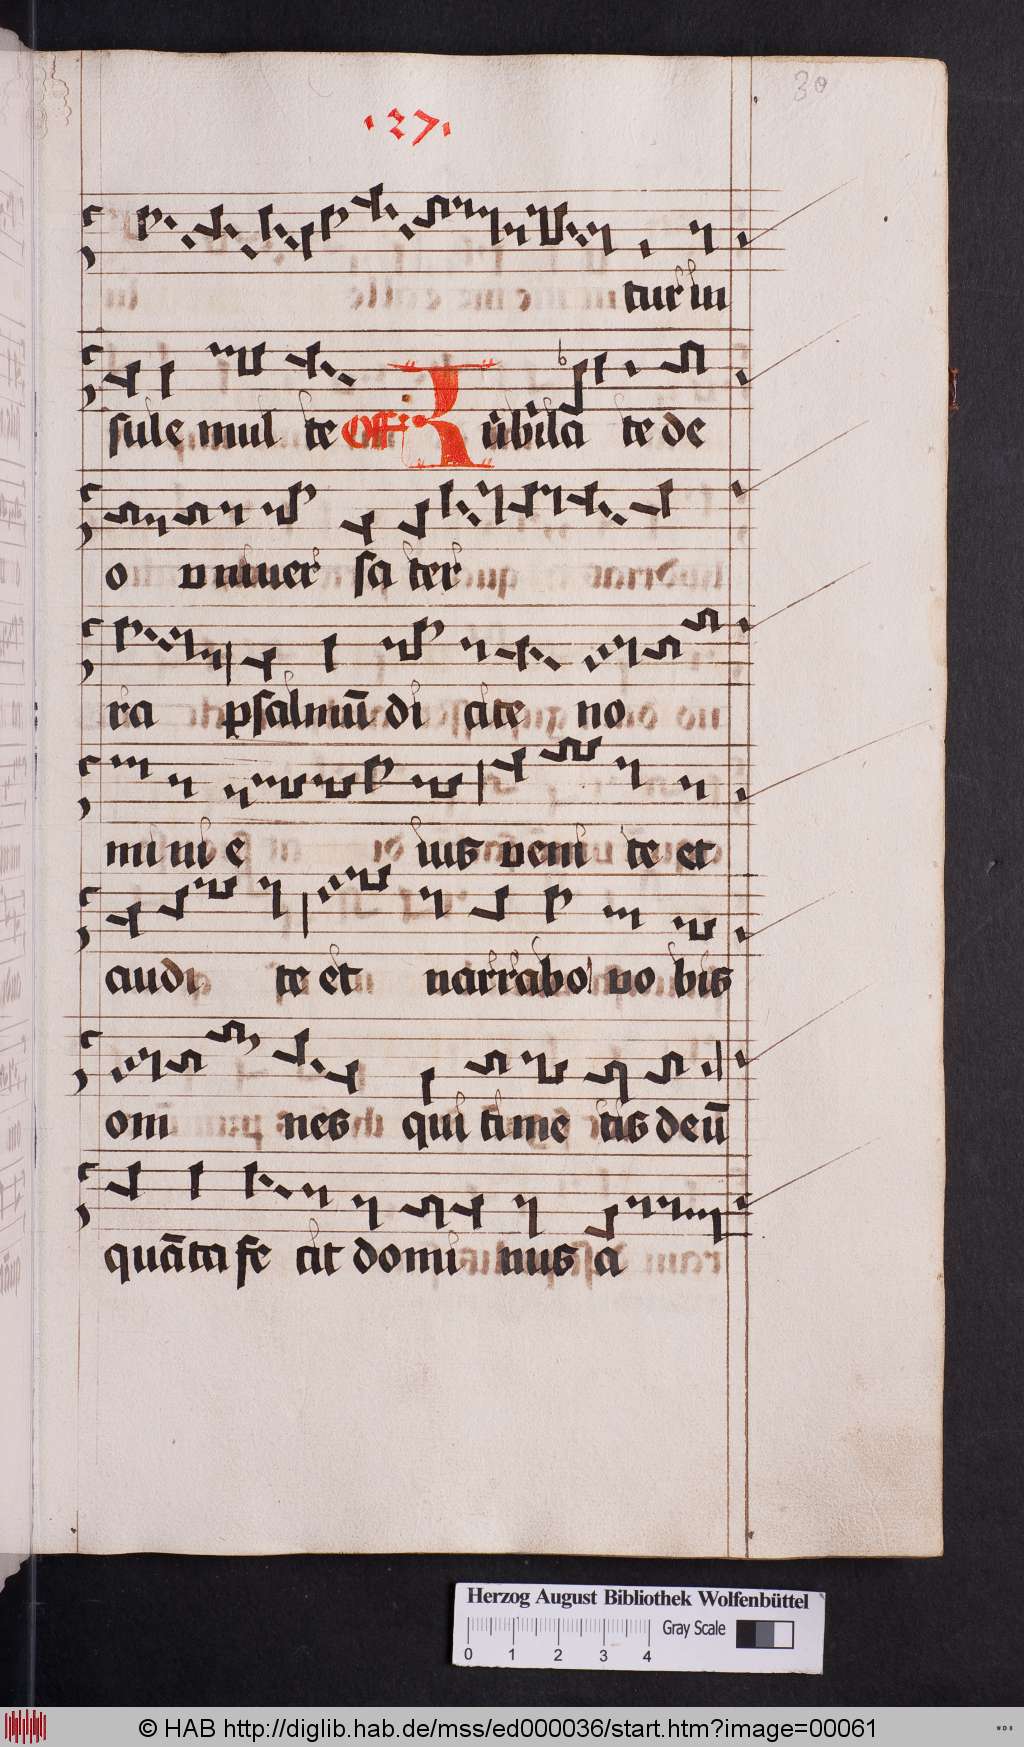 30
·27·
tur in
sule mul te Off Iubila te de
o vniuer sa ter
ra psalmū di cite no
mini e ius veni te et
audi te et narrabo no bis
om nes qui time tis deū
quāta fe cit domi nus a
Herzog August Bibliothek Wolfenbüttel
0 1 2 3 4 Gray Scale
© HAB http://diglib.hab.de/mss/ed000036/start.htm?image=00061